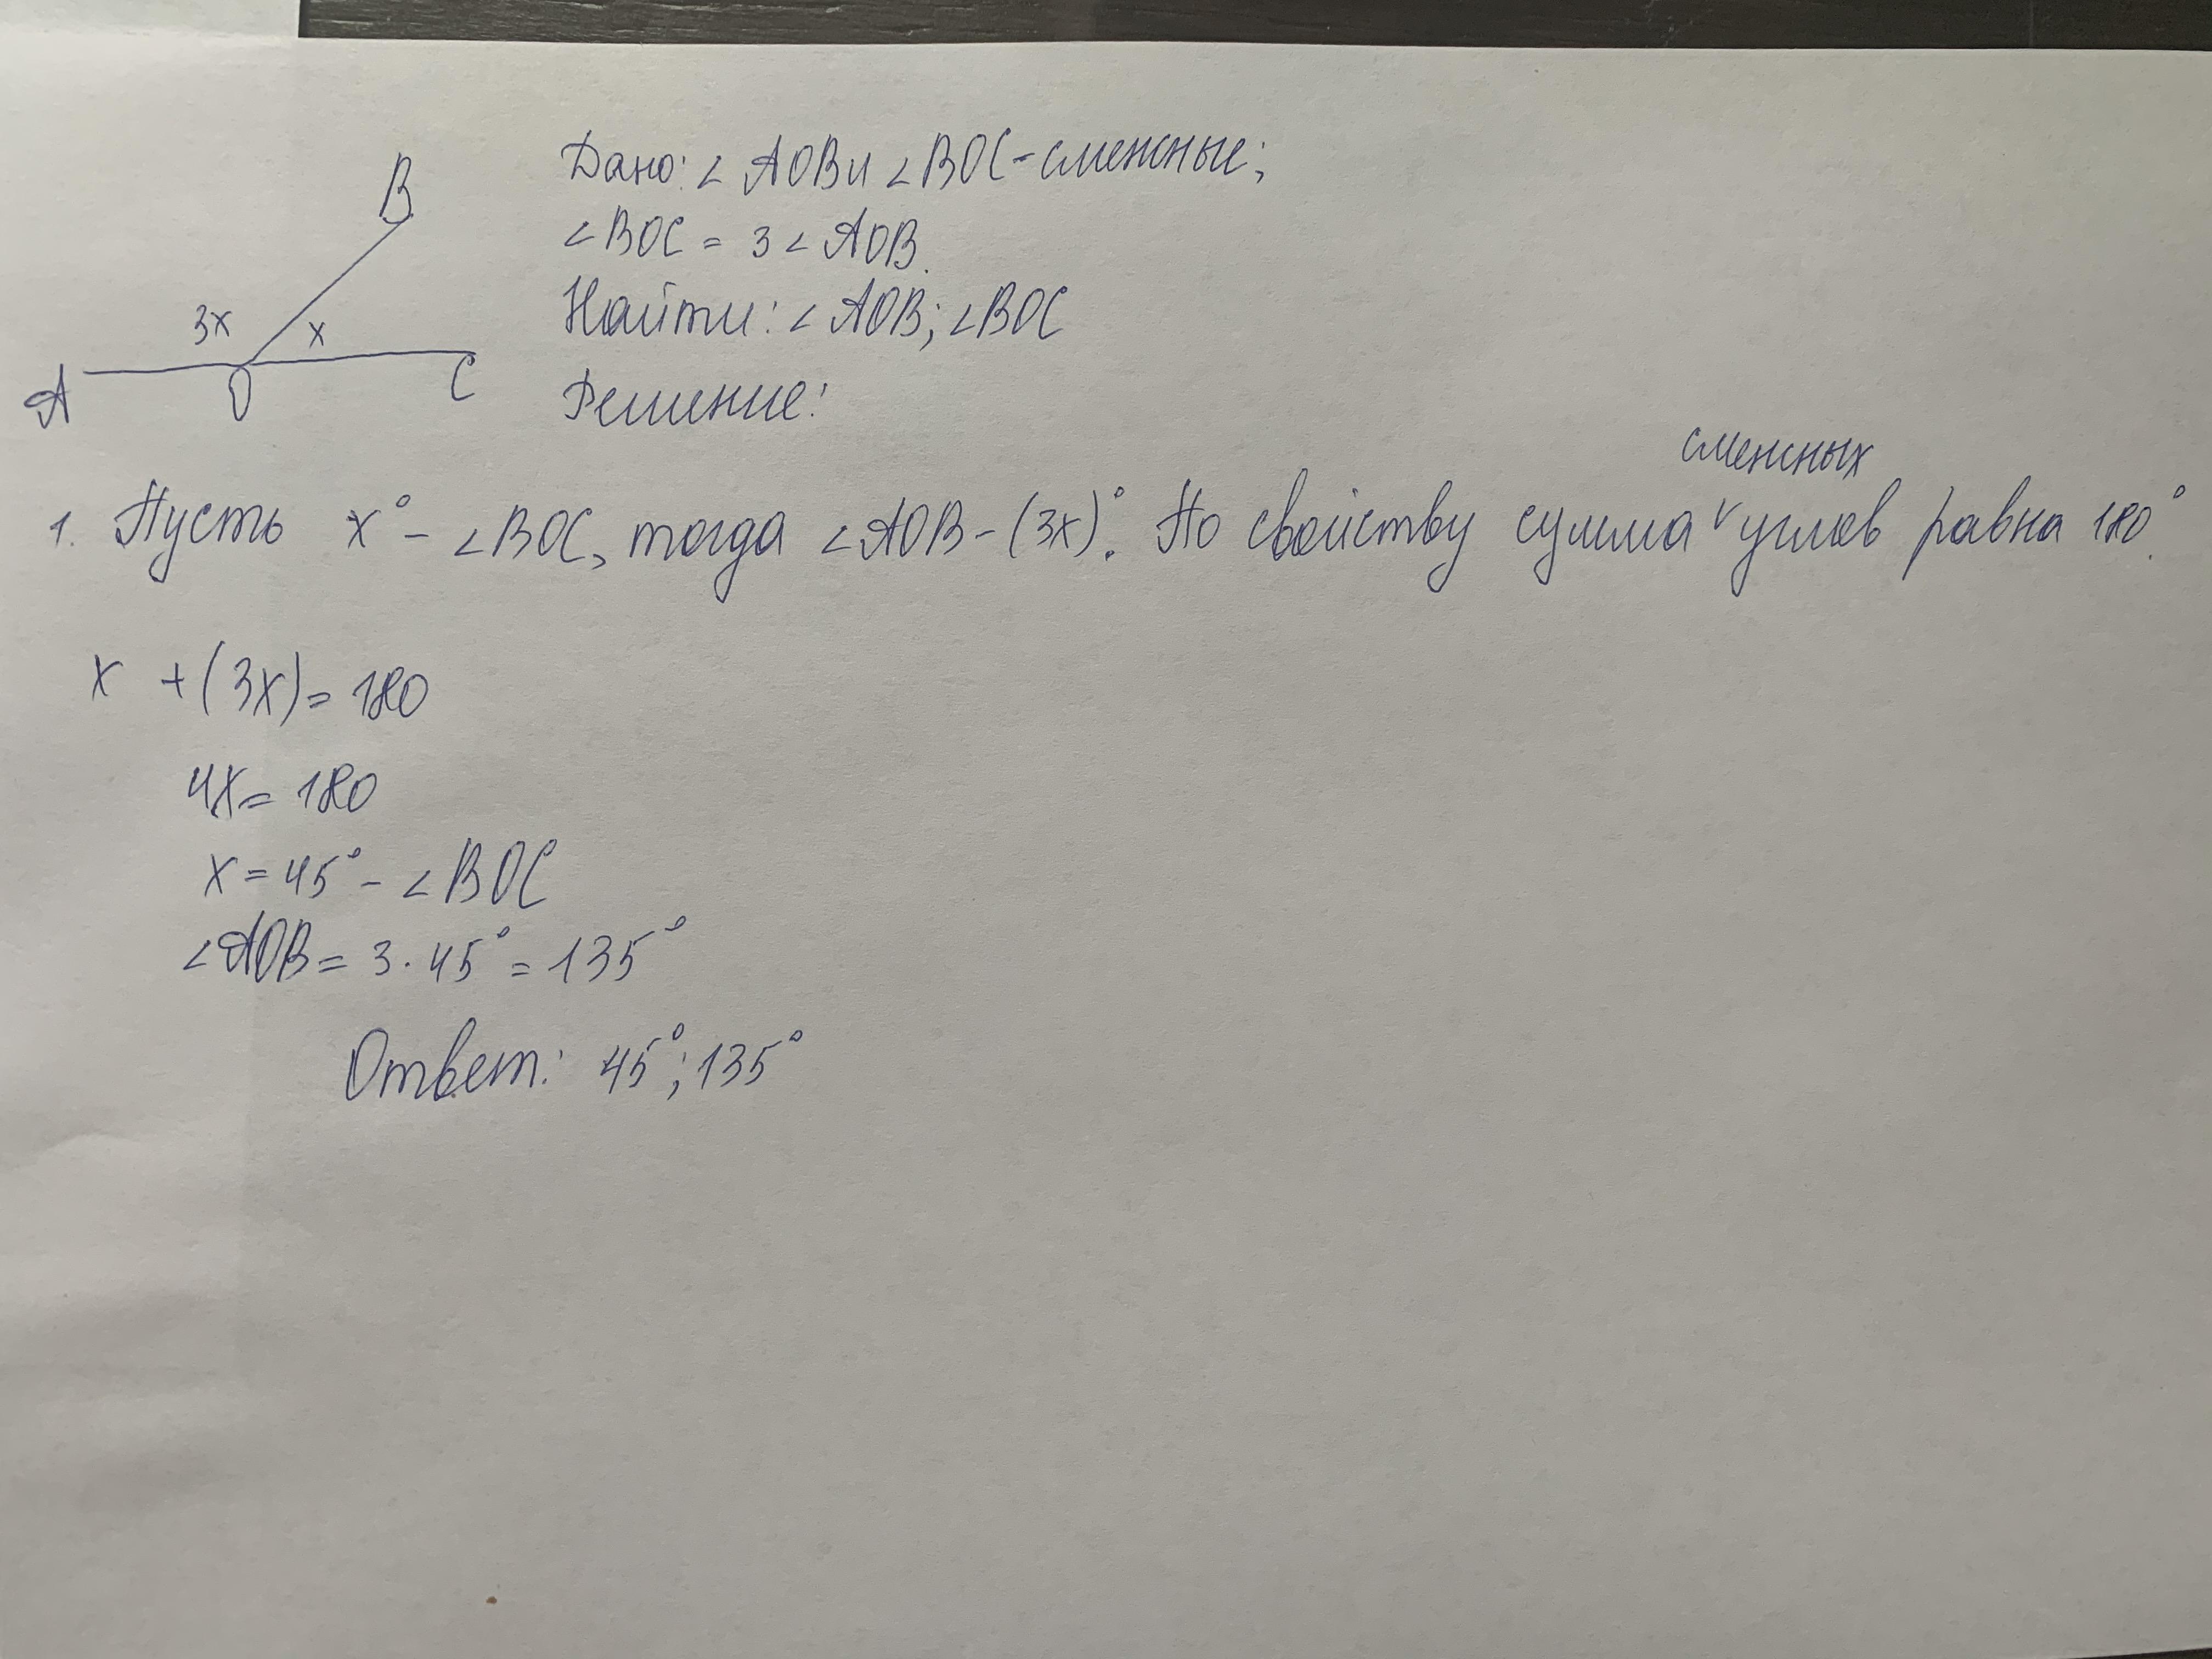 B
3x
x
A
O
C
Дано: ∠ AOB и ∠ BOC - смежные;
∠ BOC = 3 ∠ AOB.
Найти: ∠ AOB; ∠ BOC
Решение:
смежных
1. Пусть x° - ∠ BOC, тогда ∠ AOB - (3x)°. По свойству сумма ∨ углов равна 180°.
x + (3x) = 180
4x = 180
x = 45° - ∠ BOC
∠ AOB = 3 · 45° = 135°
Ответ: 45°; 135°